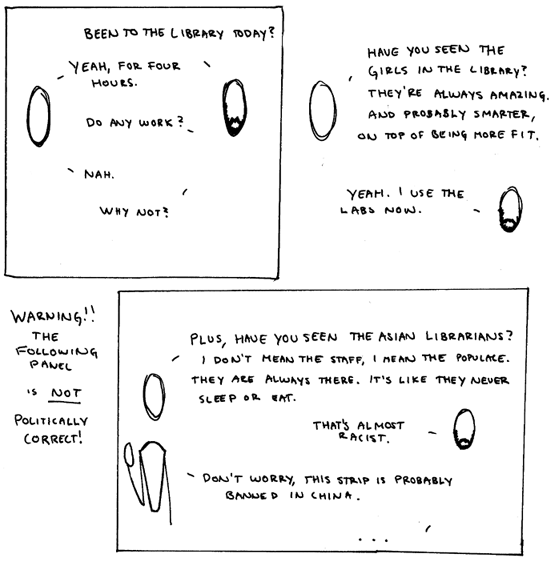 BEEN TO THE LIBRARY TODAY?
YEAH, FOR FOUR
HOURS.
DO ANY WORK?
NAH.
WHY NOT?
HAVE YOU SEEN THE
GIRLS IN THE LIBRARY?
THEY'RE ALWAYS AMAZING.
AND PROBABLY SMARTER,
ON TOP OF BEING MORE FIT.
YEAH. I USE THE
LABS NOW.
WARNING!!
THE
FOLLOWING
PANEL
IS NOT
POLITICALLY
CORRECT!
PLUS, HAVE YOU SEEN THE ASIAN LIBRARIANS?
I DON'T MEAN THE STAFF, I MEAN THE POPULACE.
THEY ARE ALWAYS THERE. IT'S LIKE THEY NEVER
SLEEP OR EAT.
THAT'S ALMOST
RACIST.
DON'T WORRY, THIS STRIP IS PROBABLY
BANNED IN CHINA.
...